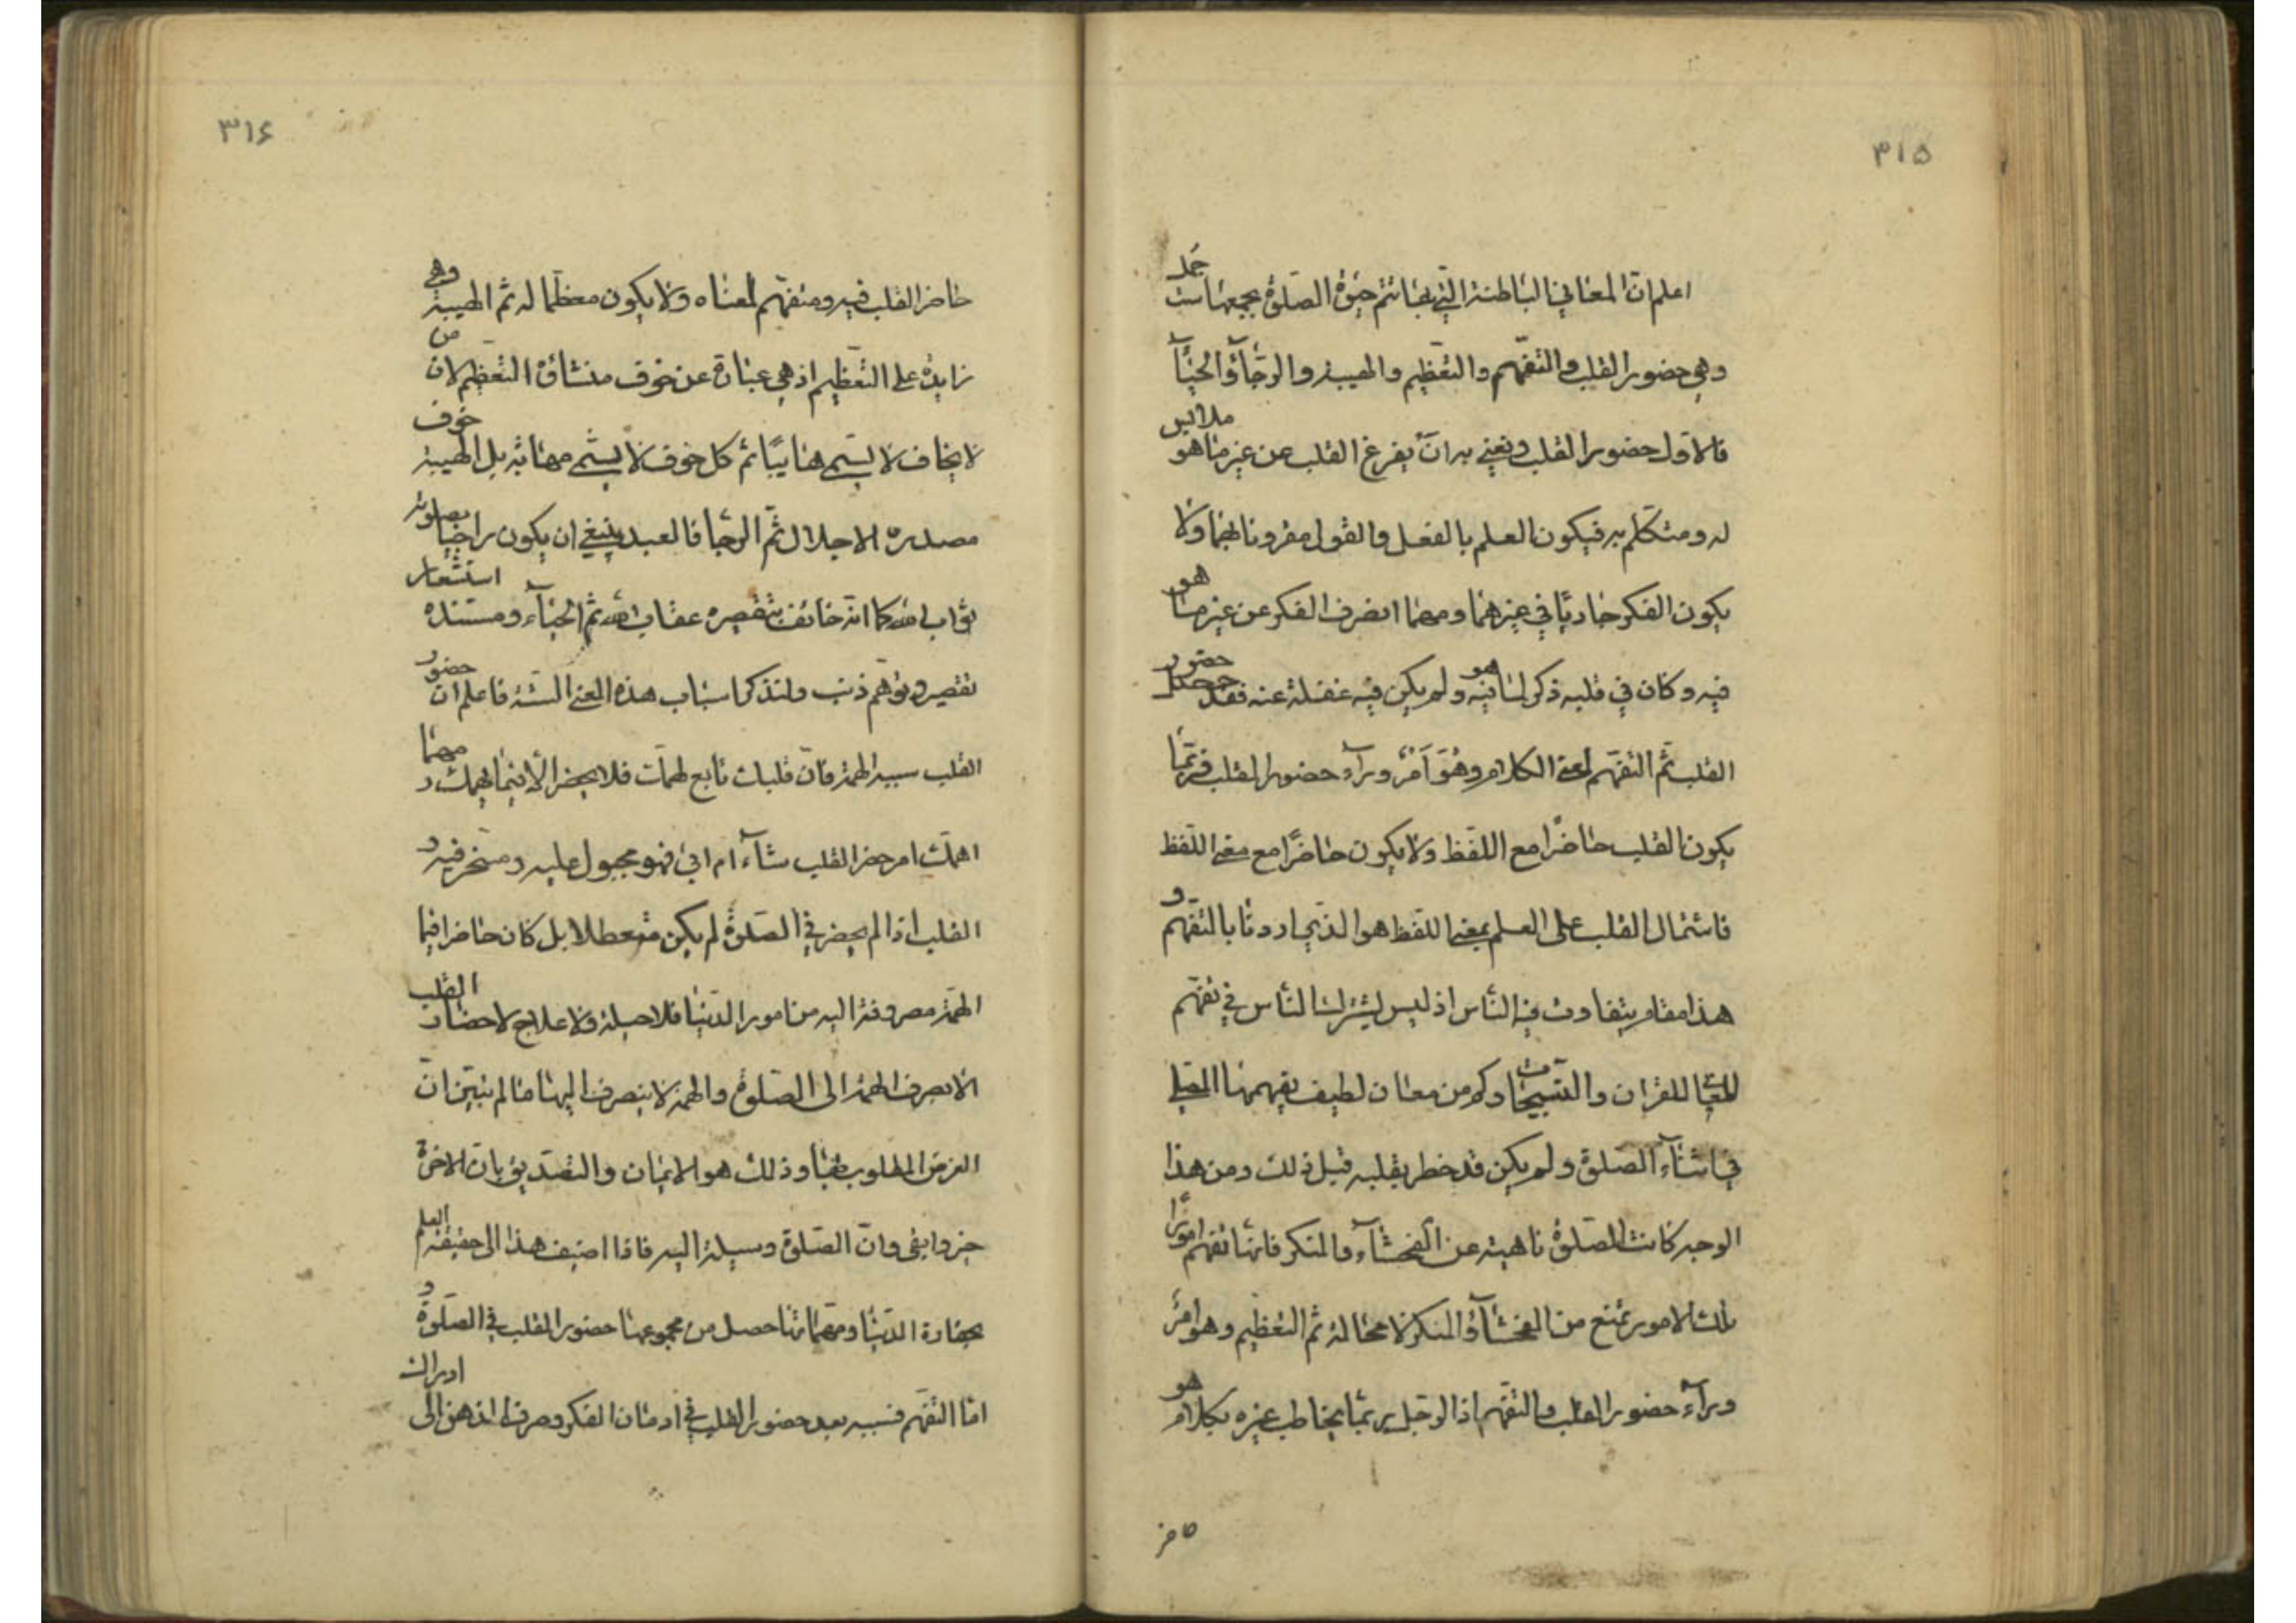 ٣١٥
اعلم ان المعاني الباطنة التي بها تتم حيوة الصلوة يجمعها ست جمل
وهي حضور القلب والتفهم والتعظيم والهيبة والرجآء والحيآ
فالاول حضور القلب ونعني به ان يفرغ القلب عن غير ما هو ملابس
له ومتكلم به فيكون العلم بالفعل والقول مقرونا بهما ولا
يكون الفكر جاريا في غيرهما ومهما انصرف الفكر عن غير ما هو
فيه وكان في قلبه ذكر لما هو فيه ولم يكن فيه غفلة عنه فقد حصل حضور
القلب ثم التفهم لمعنى الكلام وهو امر ورآء حضور القلب فربما
يكون القلب حاضرا مع اللفظ ولا يكون حاضرا مع معنى اللفظ
فاشتمال القلب على العلم بمعنى اللفظ هو الذي اردنا بالتفهم و
هذا مقام يتفاوت فيه الناس اذ ليس يشترك الناس في تفهم
المعاني للقران والتسبيحات وكم من معان لطيف يفهمها المصلي
في اثنآء الصلوة ولم يكن قد خطر بقلبه قبل ذلك ومن هذا
الوجه كانت الصلوة ناهية عن الفحشآء والمنكر فانها تفهم امورا
تلك الامور تمنع من الفحشآء والمنكر لا محالة ثم التعظيم وهو امر
ورآء حضور القلب والتفهم اذ الرجل ربما يخاطب غيره بكلام هو
حاضر
٣١۶
حاضر القلب فيه ومتفهم لمعناه ولا يكون معظما له ثم الهيبة وهي
زايدة على التعظيم اذ هي عبارة عن خوف منشاؤه التعظيم لان من
لا يخاف لا يسمى هايبا ثم كل خوف لا يسمى مهابة بل الهيبة خوف
مصدره الاجلال ثم الرجا فالعبد ينبغي ان يكون راجيا بصلوته
ثواب الله كما انه خائف بتقصيره عقاب الله ثم الحيآء ومستنده استشعار
تقصير وتوهم ذنب ولنذكر اسباب هذه المعنى الستة فاعلم ان حضور
القلب سببه الهمة فان قلبك تابع لهمك فلا يحضر الا فيما يهمك و مهما
اهمك امر حضر القلب شآء ام ابى فهو مجبول عليه ومسخر فيه و
القلب اذا لم يحضر في الصلوة لم يكن متعطلا بل كان حاضرا فيما
الهمة مصروفة اليه من امور الدنيا فلا حيلة ولا علاج لاحضار القلب
الا بصرف الهمة الى الصلوة والهمة لا ينصرف اليها ما لم يتبين ان
الغرض المطلوب بها وذلك هو الايمان والتصديق بان الاخرة
خير وابقى وان الصلوة وسيلة اليه فاذا اضيف هذا الى حقيقة العلم
بحقارة الدنيا ومهماتها حصل من مجموعها حضور القلب في الصلوة و
اما التفهم فسببه بعد حضور القلب في ادمان الفكر وصرف الذهن الى ادراك